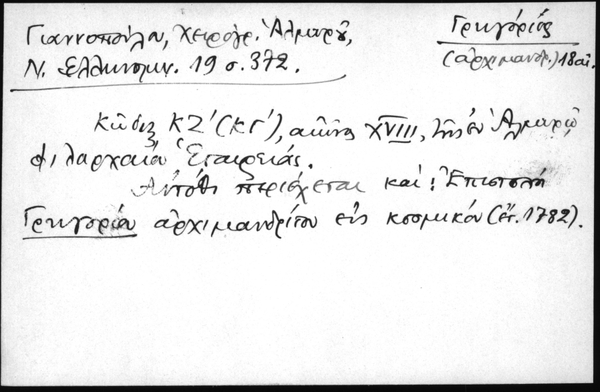 Γιαννοπούλου, Χειρόγρ. Ἁλμυροῦ,
Ν. Ἑλληνομν. 19 σ. 372.
Γρηγόριος
(ἀρχιμανδρ.) 18 αἰ.
Κῶδιξ ΚΖ΄ (ΚΓ΄), αἰῶνος XVIII, τῆς ἐν Ἁλμυρῷ
Φιλαρχαίου Ἑταιρείας.
Αὐτόθι περιέχεται καί: Ἐπιστολὴ
Γρηγορίου ἀρχιμανδρίτου εἰς κοσμικόν (ἔτ. 1782).